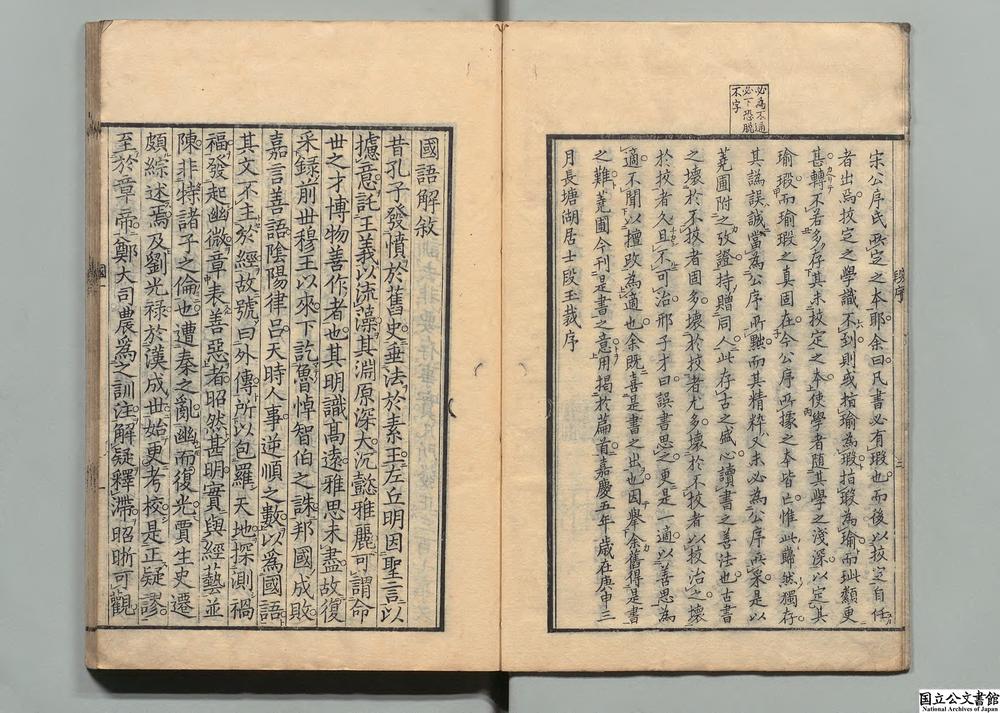 必為不通
必下恐脫
不字
段序
宋公序氏所定之本耶余曰凡書必有瑕也而後以挍定自任
者出焉挍定之學識不到則或指瑜為瑕指瑕為瑜而玼纇更
甚轉不若多存其未挍定之本使學者隨其學之淺深以定其
瑜瑕而瑜瑕之真固在今公序所據之本皆亡惟此巋然獨存
其譌誤誠當為公序所黜而其精粹又未必為公序所采是以
蕘圃附之攷證持贈同人此存古之盛心讀書之善法也古書
之壞於不挍者固多壞於挍者尤多壞於不挍者以挍治之壞
於挍者久且不可治邢子才曰誤書思之更是一適以善思為
適不聞以擅改為適也余既喜是書之出也因舉余舊得是書
之難蕘圃今刊是書之意用揭於萹首嘉慶五年歲在庚申三
月長塘湖居士段玉裁序
國語解敘
昔孔子發憤於舊史垂法於素王左丘明因聖言以
攄意託王義以流藻其淵原深大沉懿雅麗可謂命
世之才博物善作者也其明識高遠雅思未盡故復
采錄前世穆王以來下訖魯悼智伯之誅邦國成敗
嘉言善語陰陽律呂天時人事逆順之數以為國語
其文不主於經故號曰外傳所以包羅天地探測禍
福發起幽微章表善惡者昭然甚明實與經藝並
陳非特諸子之倫也遭秦之亂幽而復光賈生史遷
頗綜述焉及劉光祿於漢成世始更考校是正疑謬
至於章帝鄭大司農為之訓注解疑釋滯昭晰可觀
国立公文書館
National Archives of Japan